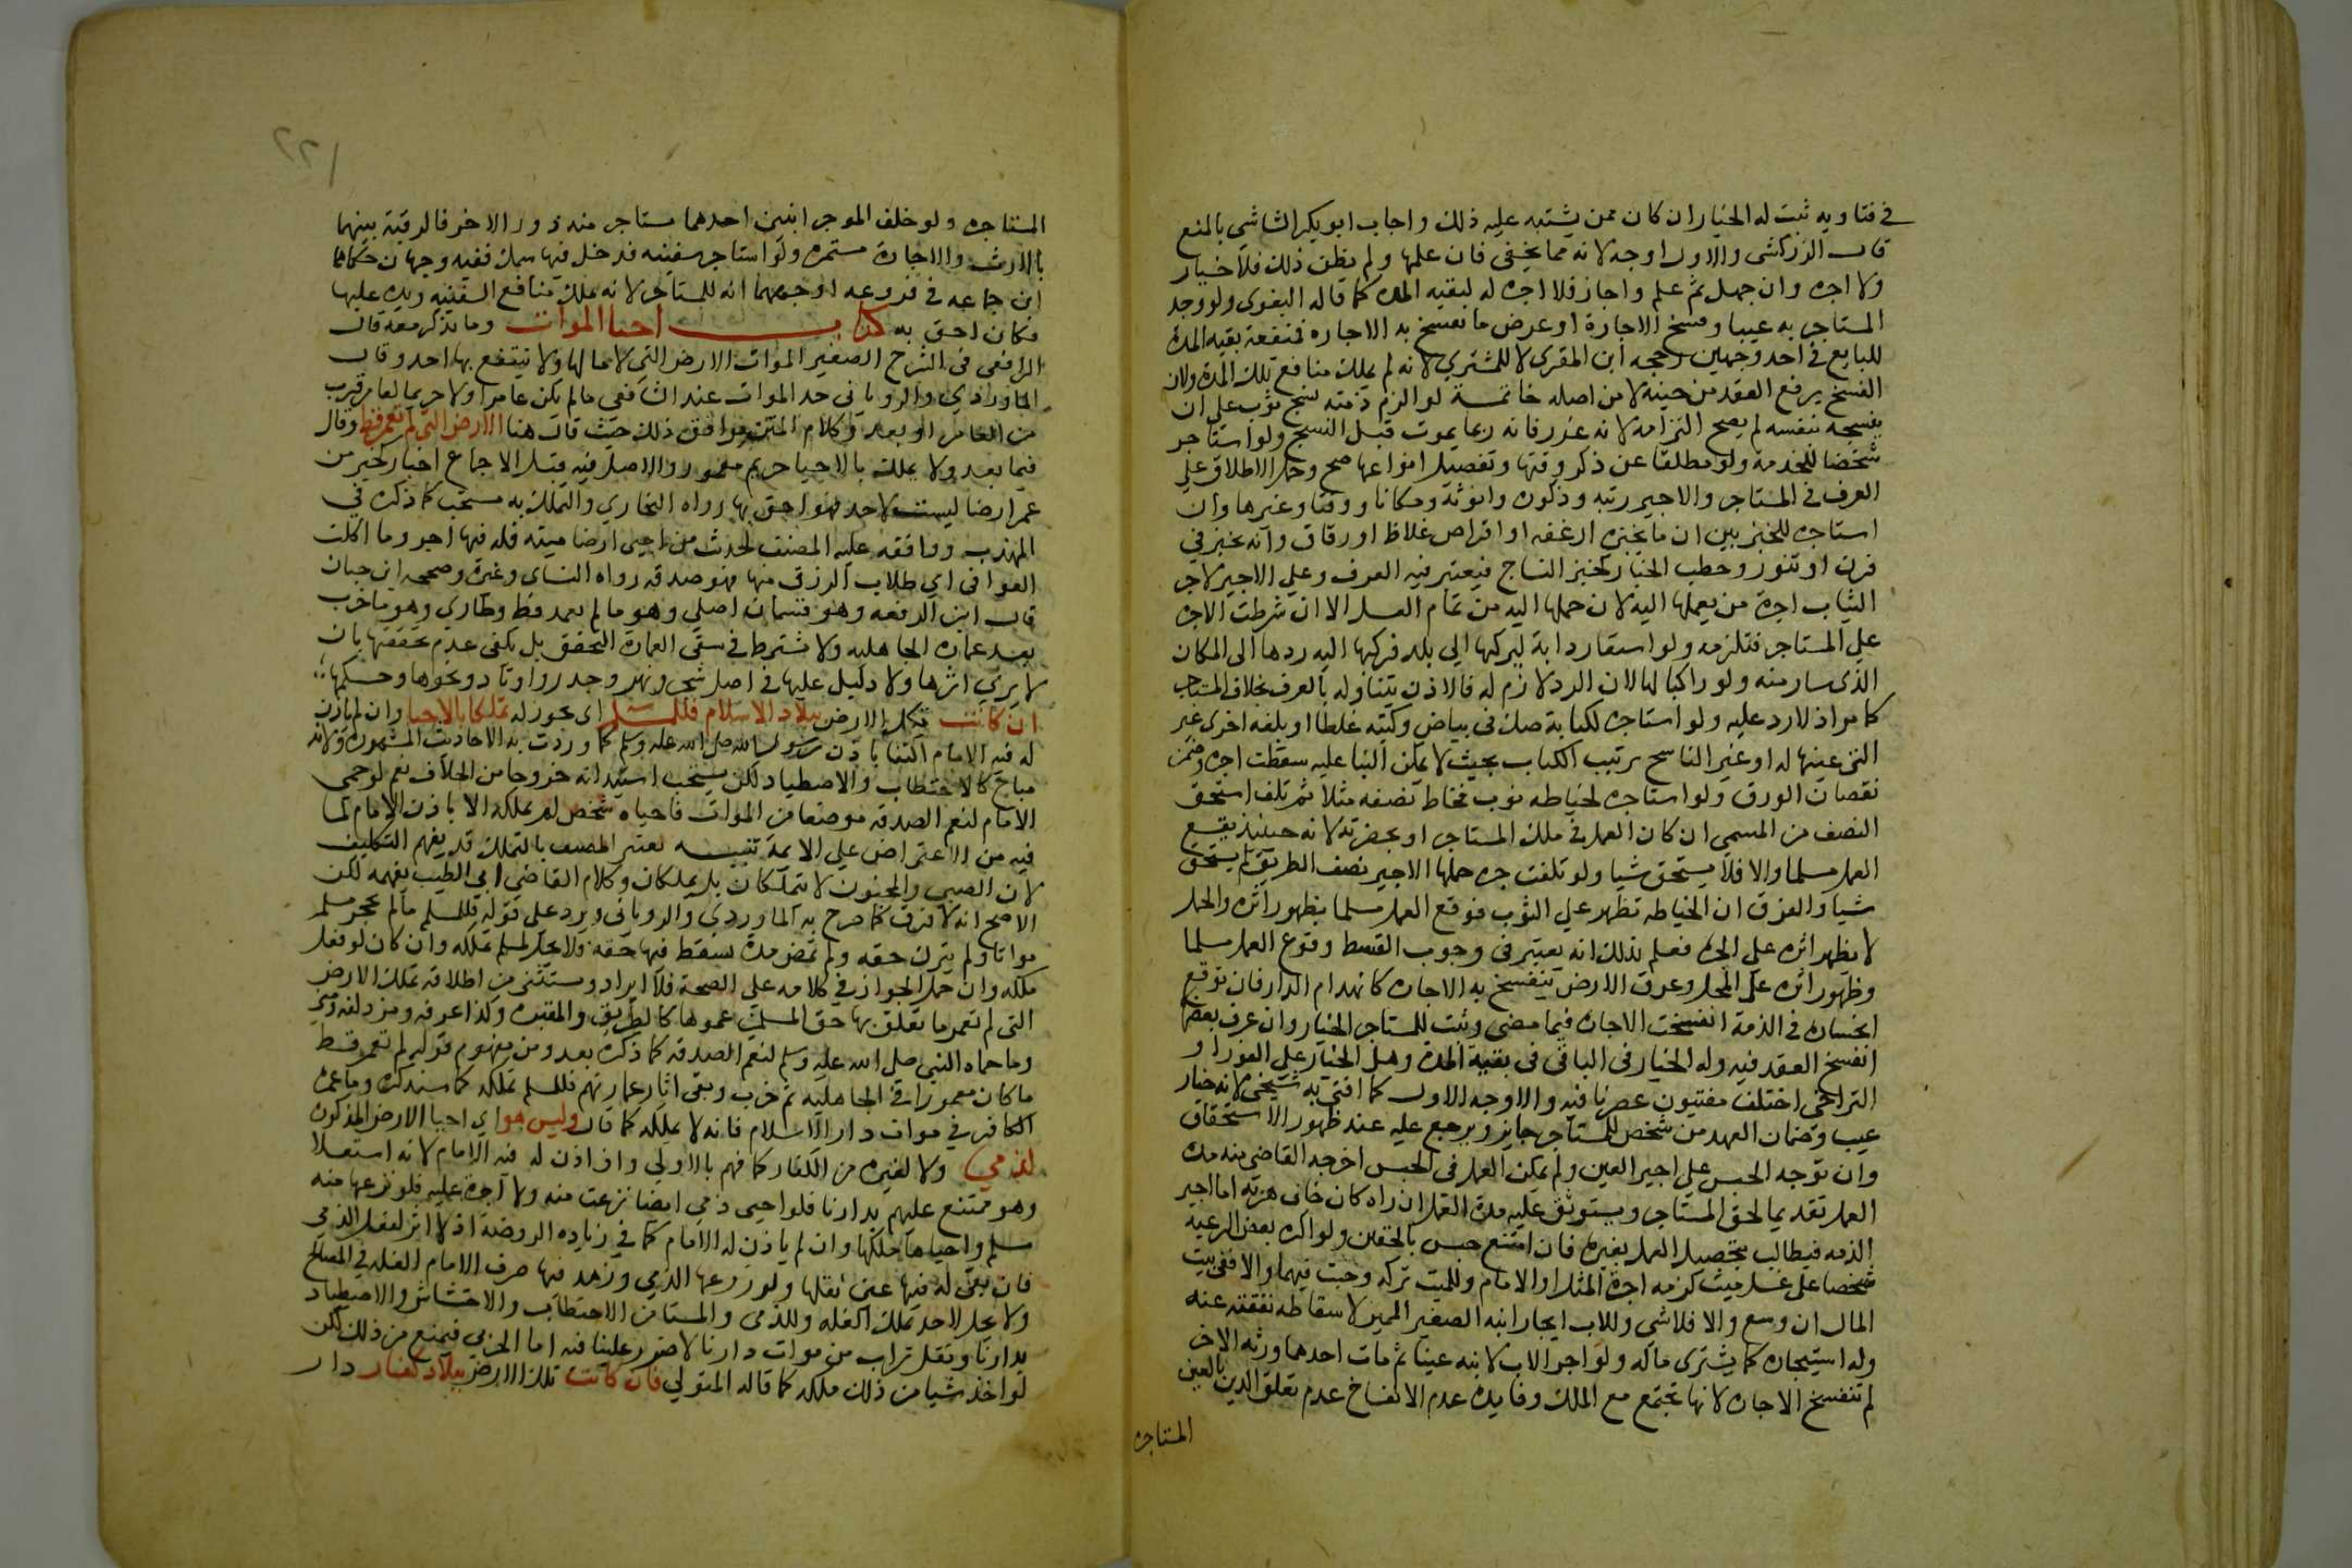 في فتاويه ثبت له الخيار ان كان ممن يشتبه عليه ذلك واجاب ابو بكر الشاشي بالمنع
قال الزركشي والاول اوجه لانه مما يخفى فان علمها ولم يظن ذلك فلا خيار
ولا اجره وان جهل ثم علم واجاز فلا اجره له لبقيه المده كما قاله البغوى ولو وجد
المستاجر به عيبا وفسخ الاجارة او عرض ما تفسخ به الاجاره فمنفعة بقيه المدة
للبايع في احد وجهين رجحه ابن المقرى لا للمشتري لانه لم يملك منافع تلك المدة ولان
الفسخ يرفع العقد من حينه لا من اصله خاتمــة لو الزم ذمته نسج ثوب على ان
ينسجه بنفسه لم يصح التزامه لانه غرر فانه ربما يموت قبل النسج ولو استاجر
شخصا للخدمة ولو مطلقا عن ذكر وقتها وتفصيل انواعها صح وحمل الاطلاق على
العرف في المستاجر والاجير رتبه وذكوره وانوثة ومكانا ووقتا وغيرها وان
استاجره للخبز بين ان ما يخبزه ارغفه او اقراص غلاظ او رقاق وانه يخبز في
فرن او تنور وحطب الخباز كحبر النساج فيعتبر فيه العرف وعلى الاجير لاجل
الثياب اجرة من يحملها اليه لان حملها اليه من تمام العمل الا ان شرطت الاجره
على المستاجر فتلزمه ولو استعار دابة ليركبها الى بلد فركبها اليه ردها الى المكان
الذى سار منه ولو راكبا لها لان الرد لازم له فالاذن يتناوله بالعرف بخلاف المستاجر
كما مر اذ لا رد عليه ولو استاجره لكتابة صك في بياض وكتبه غلطا او بلغه اخرى غير
التى عينها له او غير الناسخ ترتيب الكتاب بحيث لا يمكن البنا عليه سقطت اجره وضمن
نقصان الورق ولو استاجره لخياطه ثوب فخاط نصفه مثلا ثم تلف استحق
النصف من المسمى ان كان العمل في ملك المستاجر او بحضرته لانه حينيذ يقع
العمل مسلما والا فلا يستحق شيا ولو تلفت جره حملها الاجير نصف الطريق لم يستحق
شيا والفرق ان الخياطه تظهر على الثوب فوقع العمل مسلما بظهور اثره والحمل
لا يظهر اثره على الجره فعلم بذلك انه يعتبر في وجوب القسط وقوع العمل مسلما
وظهور اثره على المحل وغرق الارض تنفسخ به الاجاره كانهدام الدار فان توقع
انحساره في الذمة انفسخت الاجاره فيما مضى وثبت للمستاجر الخيار وان غرق بعضها
انفسخ العقد فيه وله الخيار في الباقى في بقية المدة وهل الخيار على الفور او
التراخي اختلف مفتيون عصرنا فيه والاوجه الاول كما افتى به شيخي لانه خيار
عيب وضمان العهد من شخص للمستاجر جايز ويرجع عليه عند ظهور الاستحقاق
وان توجه الحبس على اجير العين ولم يمكن العمل في الحبس اخرجه القاضى منه مدة
العمل تقديما لحق المستاجر ويستوثق عليه مدة العمل ان راه كان خاف هربه اما اجير
الذمه فيطالب بتحصيل العمل بغيره فان امتنع حبس بالحقين ولو اكره بعض الرعيه
شخصا على غسل ميت لزمه اجرة المثل او الامام وللميت تركه وجبت فيها والا ففي بيت
المال ان وسع والا فلا شي وللاب ايجار ابنه الصغير المميز لاسقاطه نفقته عنه
وله استيجاره كما يشترى ماله ولو اجر الاب لابنه عينا ثم مات احدهما ورثه الاخر
لم تنفسخ الاجاره لانها تجتمع مع الملك وفايدة عدم الانفساخ عدم تعلق الدين بالعين
المستاجره
٢٢١
المستاجره ولو خلف الموجر ابنين احدهما مستاجر منه دون الاخر فالرقبة بينهما
بالارث والاجارة مستمره ولو استاجر سفينه فدخل فيها سمك ففيه وجهان حكاهما
ابن جماعه في فروعه اوجههما انه للمستاجر لانه يملك منافع السفينه ويده عليها
فكان احق به كتاب احيا الموات وما يذكر معه قال
الرافعى في الشرح الصغير الموات الارض التي لا ما لها ولا ينتفع بها احد وقال
الماوردي والرويانى حد الموات عند الشافعى مالم يكن عامرا ولا حريما لعامر قرب
من العامر او بعد وكلام المتن يوافق ذلك حيث قال هنا الارض التى لم تعمر قط وقال
فيما بعد ولا يملك بالاحيا حريم معمور والاصل فيه قبل الاجماع اخبار كخبر من
عمر ارضا ليست لاحد فهو احق بها رواه البخاري والتملك به مستحب كما ذكره في
المهذب ووافقه عليه المصنف لحديث من احيى ارضا ميته فله فيها اجر وما اكلت
العوافى اي طلاب الرزق منها فهو صدقه رواه النساى وغيره وصححه ابن حبان
قال ابن الرفعه وهو قسمان اصلي وهو ما لم يعمر قط وطاري وهو ما خرب
بعد عماره الجاهليه ولا يشترط في نفي العمارة التحقق بل يكفى عدم تحققها بان
لا يرى اثرها ولا دليل عليها في اصل شجر ونهر وجدر واوتاد ونحوها وحكمها
ان كانت تلك الارض ببلاد الاسلام فللمسلم اى يجوز له تملكها بالاحيا وان لم ياذن
له فيه الامام اكتفا باذن رسول الله صلى الله عليه وسلم كما وردت به الاحاديث المشهورة ولانه
مباح كالاحتطاب والاصطياد لكن يستحب استيذانه خروجا من الخلاف نعم لو حمى
الامام لنعم الصدقه موضعا من الموات فاحياه شخص لم يملكه الا باذن الامام لما
فيه من الاعتراض على الايمة تنبيــه تعبير المصنف بالتملك قد يفهم التكليف
لان الصبى والمجنون لا يتملكان بل يملكان وكلام القاضى ابى الطيب يفهمه لكن
الاصح انه لا فرق كما صرح به الماوردى والرويانى ويرد على قوله للمسلم مالم يحجر مسلم
مواتا ولم يترك حقه ولم تمض مدة يسقط فيها حقه فلا يحل لمسلم تملكه وان كان لو فعل
ملكه وان حمل الجواز في كلامه على الصحة فلا ايراد ويستثنى من اطلاقه تملك الارض
التى لم تعمر ما تعلق بها حق المسلمين عموما كالطريق والمقبره وكذا عرفه ومزدلفه ومنى
وما حماه النبي صلى الله عليه وسلم لنعم الصدقه كما ذكره بعد ومن مفهوم قوله لم تعمر قط
ما كان معمورا في الجاهليه ثم خرب وبقى اثار عمارتهم فللمسلم تملكه كما سيذكره وما عمره
الكافر في موات دار الاسلام فانه لا يملكه كما قال وليس هو اي احيا الارض المذكورة
لذمي ولا لغيره من الكفار كما فهم بالاولى وان اذن له فيه الامام لانه استعلا
وهو ممتنع عليهم بدارنا فلو احيى ذمي ارضا نزعت منه ولا اجرة عليه فلو نزعها منه
مسلم واحياها ملكها وان لم ياذن له الامام كما في زياده الروضة اذ لا اثر لفعل الذمي
فان بقى له فيها عين نقلها ولو زرعها الذمي وزهد فيها صرف الامام الغله في المصالح
ولا يحل لاحد تملك الغله وللذمى والمستامن الاحتطاب والاحتشاش والاصطياد
بدارنا ونقل تراب من موات دارنا لا ضرر علينا فيه اما الحربى فيمنع من ذلك لكن
لو اخذ شيا من ذلك ملكه كما قاله المتولي فان كانت تلك الارض ببلاد كفار دار